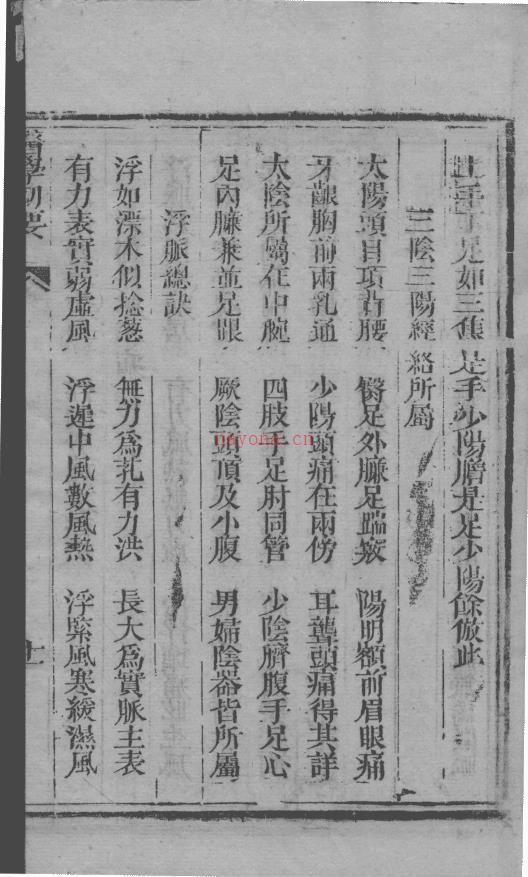 足如三焦是手少陽膽是足少陽餘倣此
三陰三陽經絡所屬
太陽頭目項背腰 臀足外臁足踹竅 陽明額前眉眼痛
牙齦胸前兩乳通 少陽頭痛在兩傍 耳聾頭痛得其詳
太陰所屬在中脘 四肢手足肘同管 少陰臍腹手足心
足內臁兼並足跟 厥陰頭頂及小腹 男婦陰器皆所屬
浮脈總訣
浮如漂木似捻葱 無力為芤有力洪 長大為實脈主表
有力表實弱虛風 浮遲中風數風熱 浮緊風寒緩濕風
醫學切要
nayona.cn